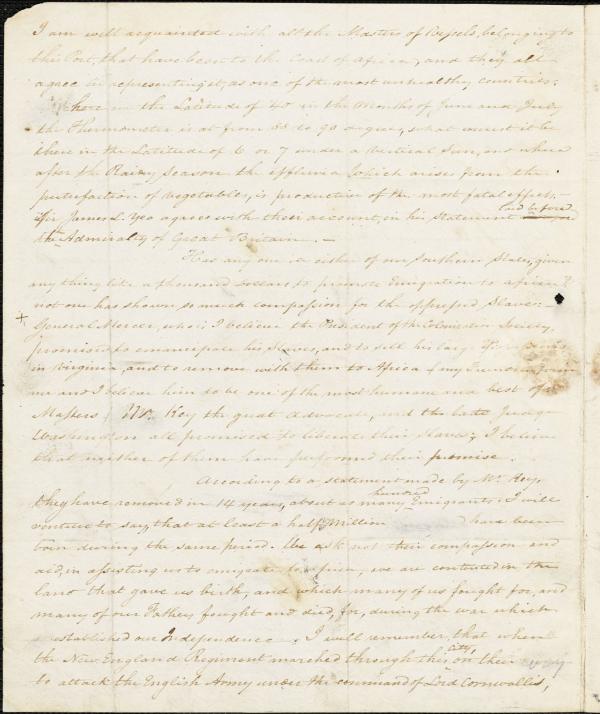 I am well acquainted with all the Masters of Vessels, belonging to
this Port, that have been to the Coast of Africa, and they all
agree in representing it, as one of the most unhealthy countries:
here in the Latitude of 40 in the Months of June and July
the Thermometer is at from 88 to 90 degrees, what must it be
there in the Latitude of 6 or 7 under a Vertical Sun, and where
after the Rainy Season the effluvia which arises from the
putrefaction of vegetables, is productive of the most fatal effects. —
Sir James L. Yeo agrees with their account, in his Statement
laid before
the Admiralty of Great Britain. —
Has any one in either of our Southern States, given
any thing like a thousand dollars to promote Emigration to Africa?
not one has shown so much compassion for the oppressed Slave.
x General Mercer, who is I believe the President of the Colonisation Society,
promised to emancipate his Slaves, and to sell his large
in Virginia, and to remove with them to Africa (my Friend
me and I believe him to be one of the most humane and best of
Masters) Mr. Key the great advocate, and the late Judge
Washington all promised to liberate their Slaves; I believe
that neither of them have performed their promise.
According to a statement made by Mr. Key,
they have removed in 14 years, about as many
hundred
Emigrants. I will
venture to say, that at least a half Million have been
born during the same period. We ask not their compassion and
aid, in assisting us to emigrate to Africa, we are contented in the
land that gave us birth, and which many of us fought for, and
many of our Fathers fought and died, for, during the war which
established our Independence. I well remember, that when
the New England Regiment marched through this
city,
on their way
to attack the English Army under the command of Lord Cornwallis,